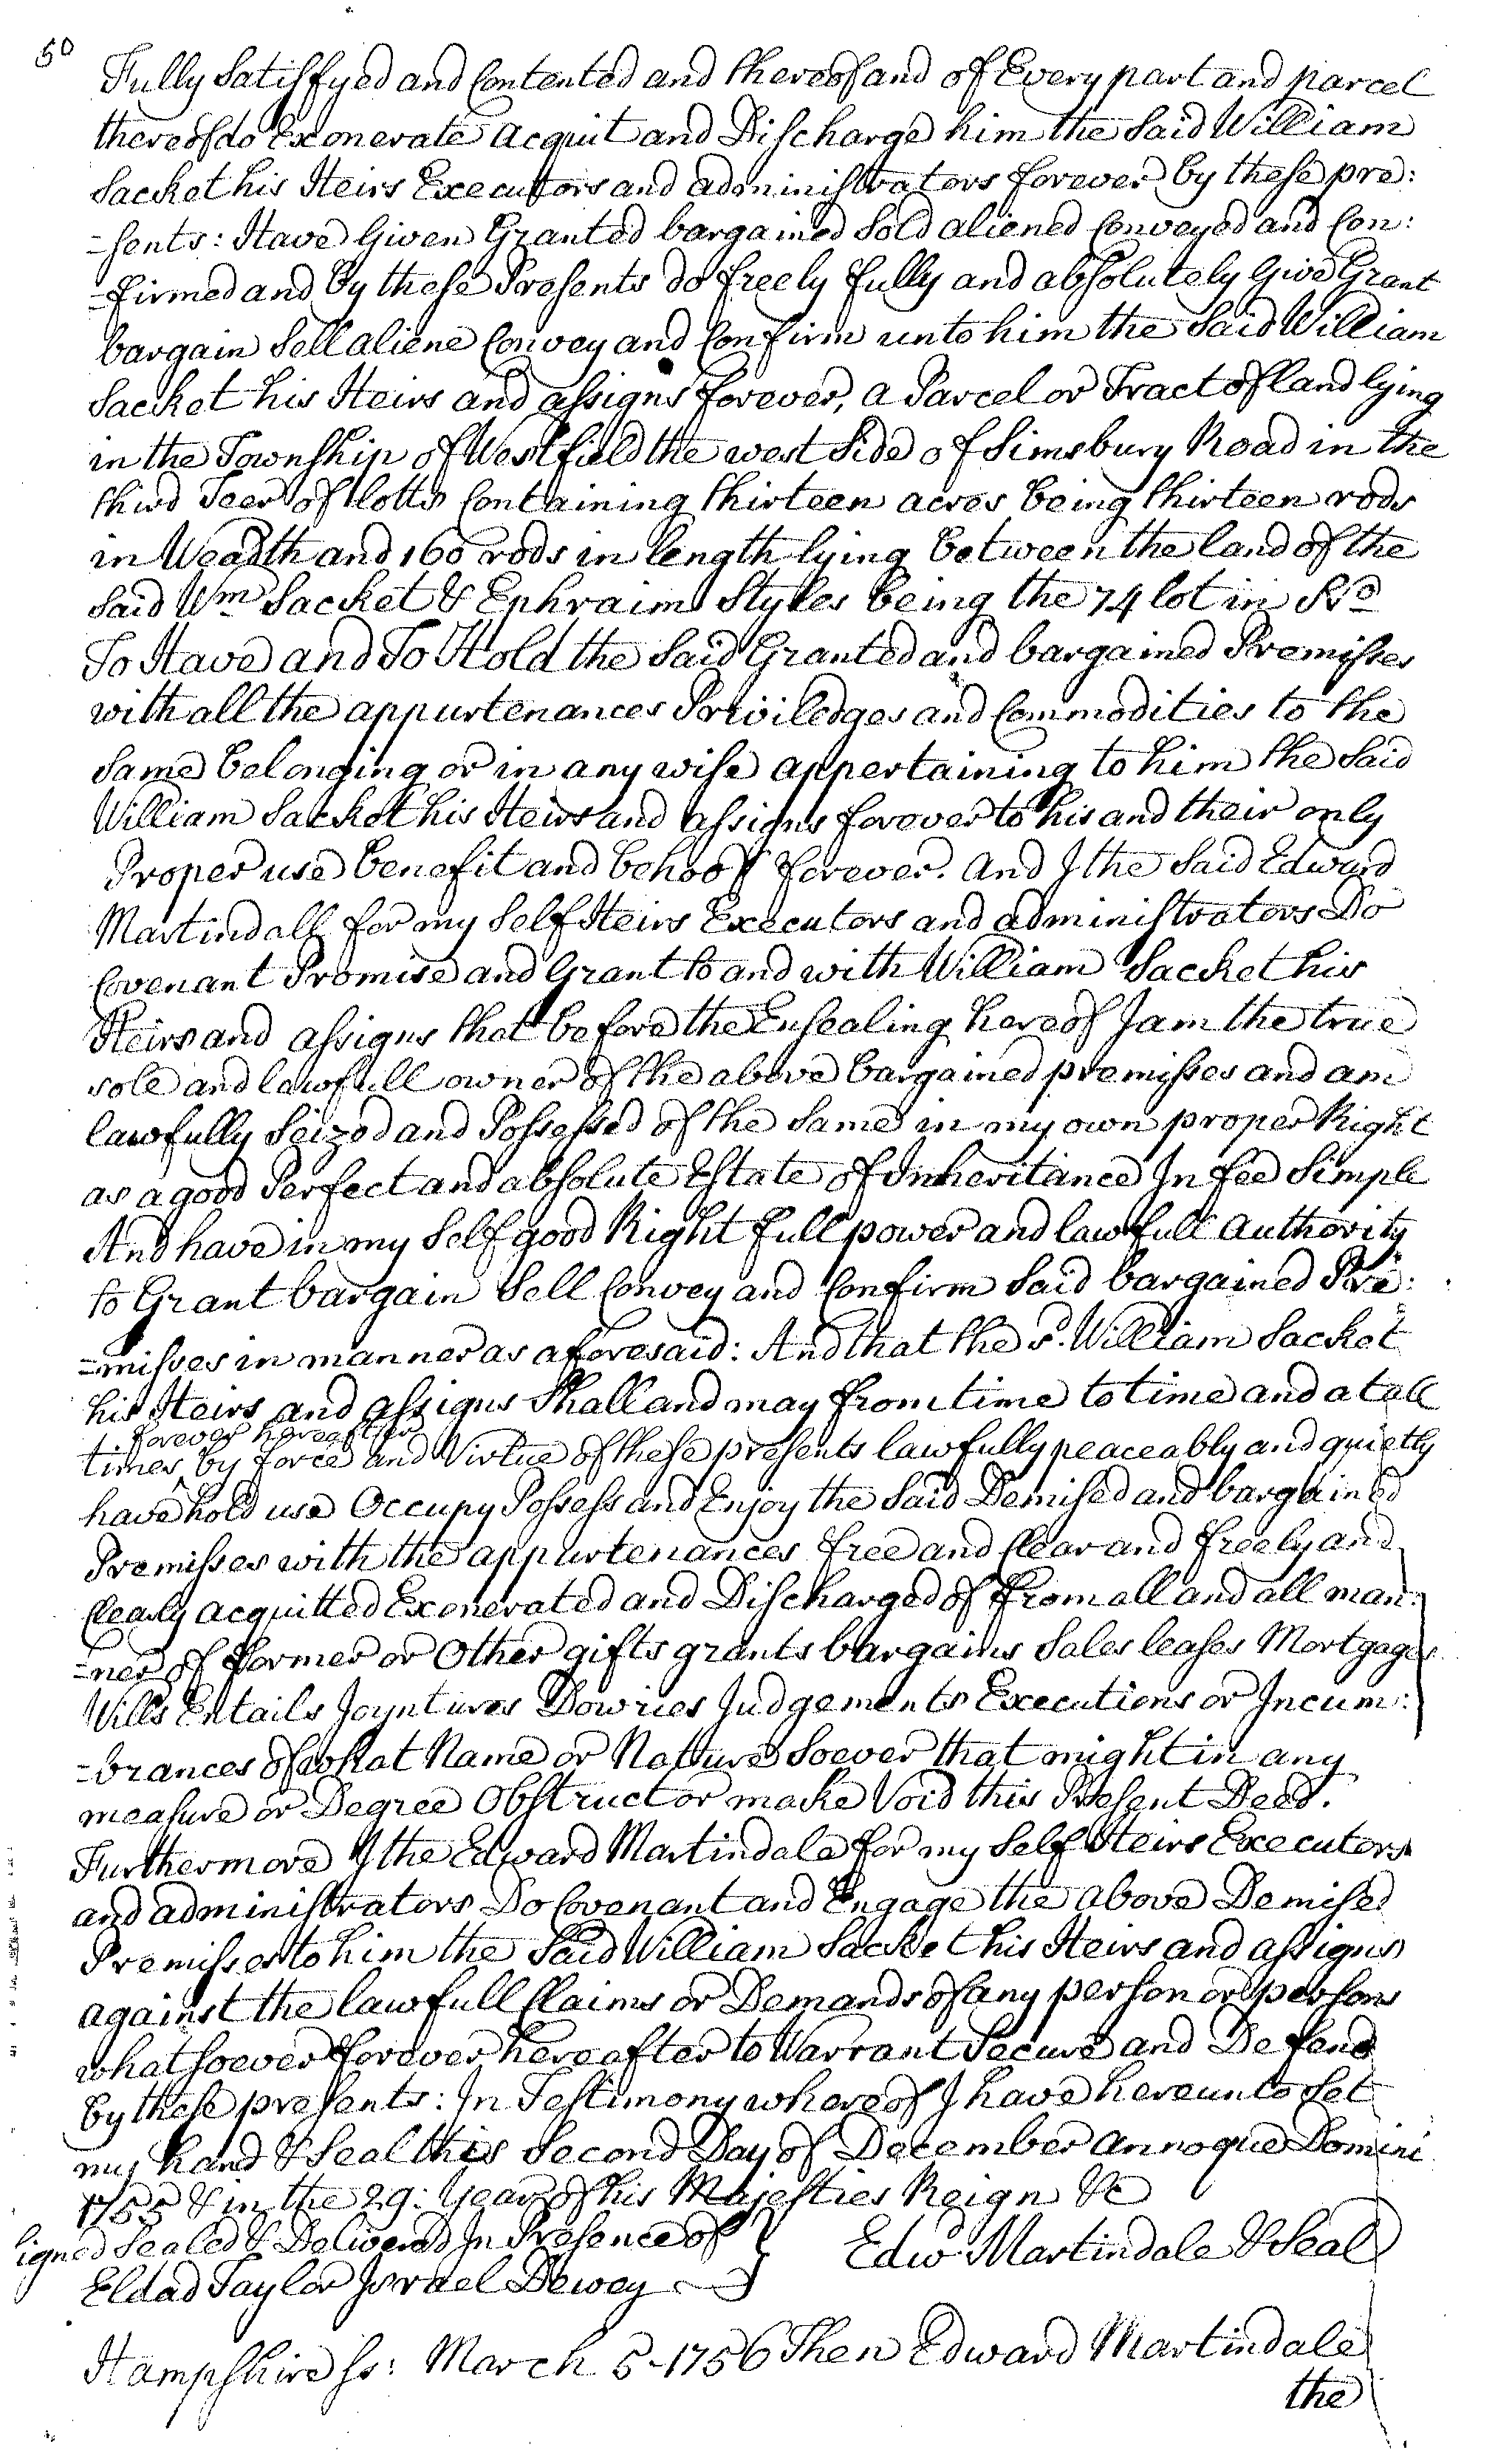 50
Fully Satisfyed and Contented and thereof and of Every part and parcel
thereof do Exonerate acquit and Discharge him the Said William
Sacket his Heirs Executors and administrators forever by these pre:
=sents: Have Given Granted bargained Sold aliened Conveyed and Con:
=firmed and by these Presents do freely fully and absolutely Give Grant
bargain Sell aliene Convey and Confirm unto him the Said William
Sacket his Heirs and assigns forever, a Parcel or Tract of land lying
in the Township of Westfield the west Side of Simsbury Road in the
third Teer of lotts Containing thirteen acres being thirteen rods
in Weadth and 160 rods in length lying between the land of the
Said Wm Sacket & Ephraim Styles being the 74 lot in No
To Have and To Hold the Said Granted and bargained Premisses
with all the appurtenances Priviledges and Commodities to the
Same belonging or in any wise appertaining to him the Said
William Sacket his Heirs and assigns forever to his and their only
Proper use benefit and behoof forever. And I the Said Edward
Martindall for my Self Heirs Executors and administrators Do
Covenant Promise and Grant to and with William Sacket his
Heirs and assigns that before the Ensealing hereof I am the true
sole and lawfull owner of the above bargained premisses and am
lawfully Seized and Possessed of the Same in my own proper Right
as a good Perfect and absolute Estate of Inheritance In fee Simple
And have in my Self good Right full power and lawfull authority
to Grant bargain Sell Convey and Confirm Said bargained Pre:
=misses in manner as aforesaid: And that the sd. William Sacket
his Heirs and assigns Shall and may from time to time and at all
forever hereafter
times by force and Virtue of these presents lawfully peaceably and quietly
have hold use Occupy Possess and Enjoy the Said Demised and bargained
Premisses with the appurtenances free and Clear and freely and
Clearly acquitted Exonerated and Discharged of from all and all man:
=ner of former or Other gifts grants bargains Sales leases Mortgages
Wills Entails Joyntures Dowries Judgements Executions or Incum:
=brances of what Name or Nature Soever that might in any
measure or Degree Obstruct or make Void this Present Deed.
Furthermore I the Edward Martindale for my Self Heirs Executors
and administrators Do Covenant and Engage the above Demised
Premisses to him the Said William Sacket his Heirs and assigns
against the lawfull Claims or Demands of any person or persons
whatsoever forever hereafter to Warrant Secure and Defend
by these presents: In Testimony whereof I have hereunto Set
my hand & Seal this Second Day of December annoque Domini
1755 & in the 29: Year of his Majesties Reign &c
igned Sealed & Delivered In Presence of
Edwd. Martindale & Seal
Eldad Taylor Israel Dewey
Hampshire ss: March 5-1756 Then Edward Martindale
the